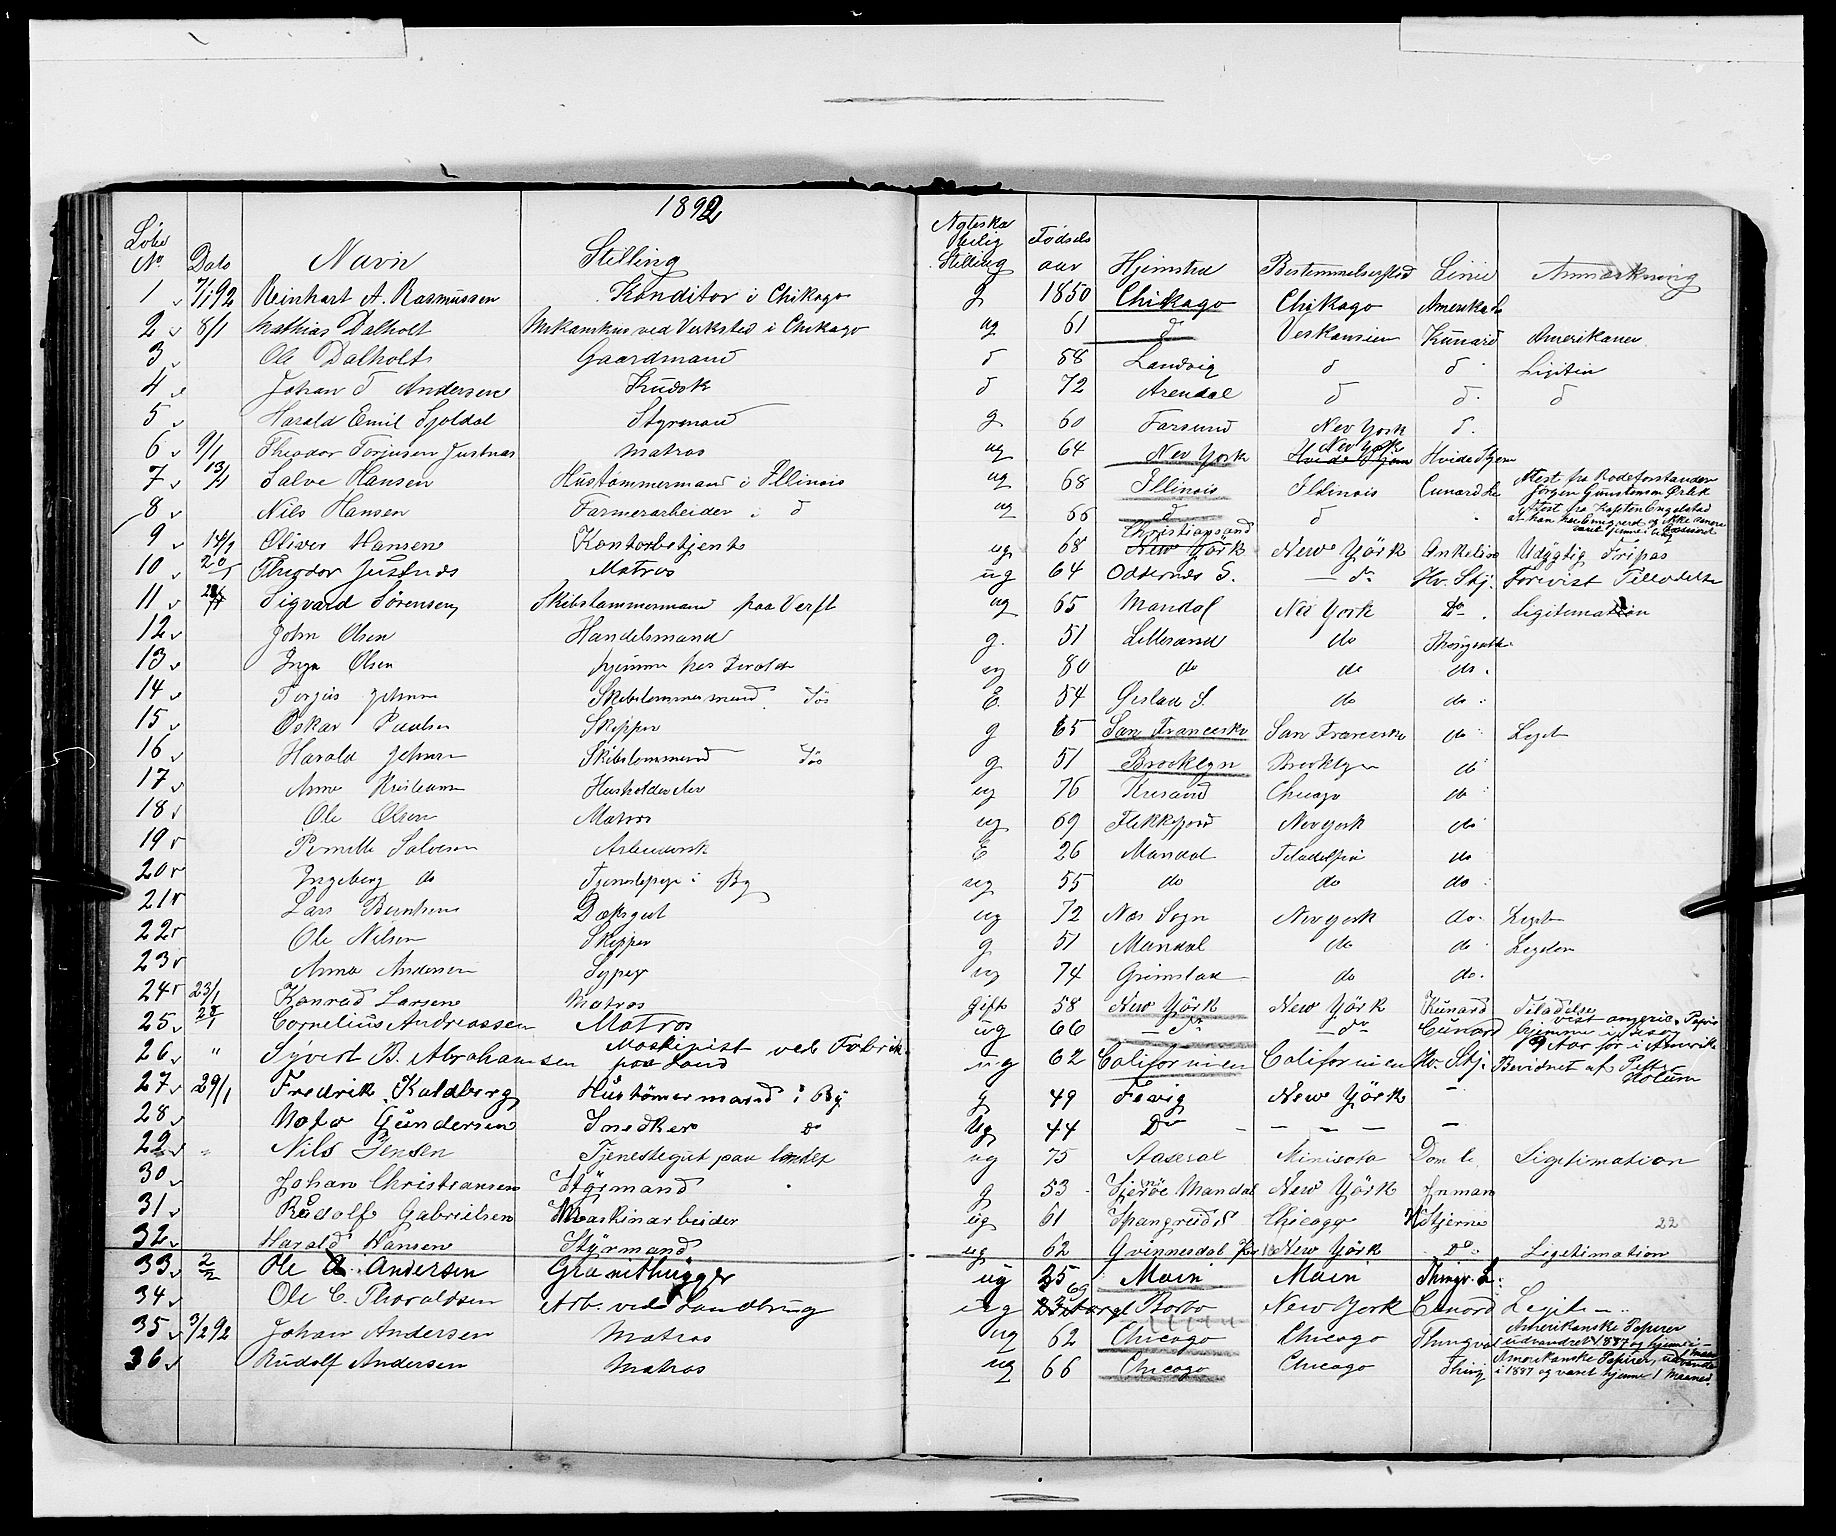 1892
Løbe No Dato Navn Stilling Ægteskabelig Stilling Fødsels aar Hjemsted Bestemmelsessted Linie Anmærkning
1 7/1 92 Reinhart A. Rasmussen Konditor i Chikago g 1850 Chikago Chikago Amerika L
2 8/1 Mathias Dalholt Mekanikus ved Verksted i Chikago ug 61 d Veskonsien Kunard Amerikaner
3 Ole Dalholt Gaardmand d 58 Landvig d d Legitim
4 Johan d Andersen Kudsk d 72 Arendal d d d
5 Harald Emil Sjoldal Styrman g 60 Farsund New York d.
6 9/1 Theodor Torjusen Justnæs Matros ug 64 New York New York Hvide Stjern
7 13/1 Salve Hansen Hustømmermand i Illinois ug 68 Illinois Illinois Cunard Le Attest fra Rodeforstander Jörgen Gunstensen
8 Nils Hansen Farmerarbeider i d ug 66 d d Attest fra Kaptein Engelstad
9 14/1 Oliver Hansen Kontorbetjent ug 68 Christiansand New York New Yörk Ankeline Udygtig Tripas
10 20/1 Theodor Justnæs Matros ug 64 Oddernes S. — do Hv. Stj. Forevist Tilladelse
11 Sigvard Sörensen Skibstømmermand paa Verft ug 65 Mandal New York Do Legitimation
12 John Olsen Handelsmand g. 51 Lillesand do
13 Inga Olsen hjemme hos Forældr ug 80 do do do.
14 Torjus Johnsen Skibstømmermand Søs E. 54 do do
15 Oskar Paulsen Skipper g 65 San Francesko San Francesko do Legit
16 Harald Johnsen Skibstømmermand Søs g 51 Brooklyn Brooklyn do
17 Anna Kristiansen Husholderske ug 76 Krisand Chicago do
18 Ole Olsen Matros ug 69 Flekkefjord New york do
19 Pernille Salvesen E 26 Mandal Feladelfia do
20 Ingeborg do Tjenestepige i By ug 55 do do do
21 Lars Berntsen Dæksgut ug 72 Næs Sogn New york do. Legit
22 Ole Nilsen Skipper g 51 Mandal do do
23 Anna Andersen Sypige ug 74 Grimstad do do.
24 23/1 Konrad Larsen Matros gift 58 New Yörk New Yörk Kunard Teladelse
25 28/1 Cornelius Andreassen Matros ug 66 — do — do Cunard
26 " Syvert B. Abrahamsen Maskinist ved Fabrik paa Land ug 62 Californien Californien Hv. Stj. Bevidnet af Petter Holum
27 29/1 Fredrik Kaldberg Hustømermand i By g 49 Fevig New Yörk —
28 Gundersen Snedker do Ug 44 Do — — — —
29 " Nils Jensen Tjenestegut paa landet ug 75 Aaseral Minisota Dom L. Ligetimation
30 Johan Christiansen Störmand g 53 Mandal New Yörk Inman
31 Rudolf Gabrielsen Maskinarbeider ug 61 Spangreid S Chicago H Stjerne 22
32 Harald Hansen Störmand ug 62 Qvinnesdal New Yörk Do Ligetimation
33 2/2 Ole A. Andersen Granithugger ug 25 Main Main Thingv. L.
34 Ole C. Thoraldsen Arb. ved Landbrug ug 69 Borbo New York Cunard Legitim
35 3/2 92 Johan Andersen Matros ug 62 Chicago Chicago Thingval Amerikanske Papirer udvandret 1887 og hjemme i 1 Maaned
36 Rudolf Andersen Matros ug 66 Chicago Chicago Thing Amerikanske Papirer, udvandr i 1887 og varet hjemme 1 Maaned.